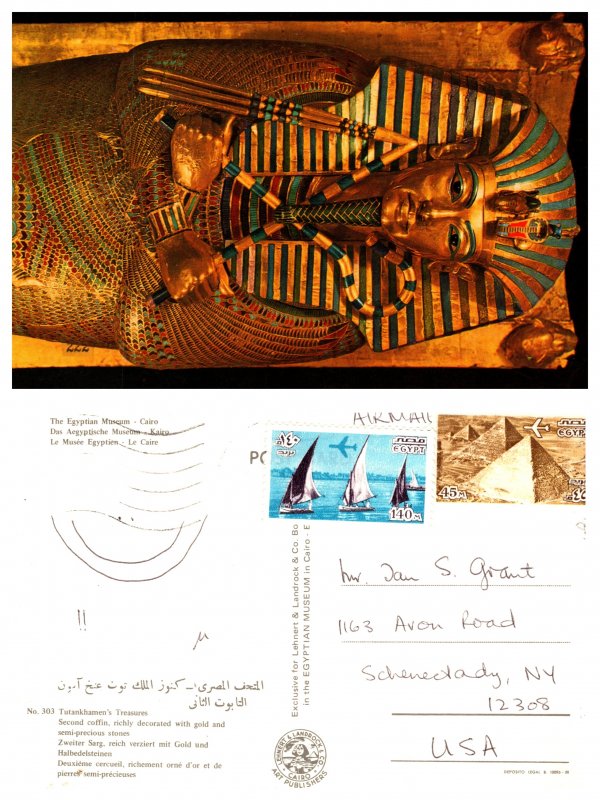 The Egyptian Museum - Cairo
Das Aegyptische Museum - Kairo
Le Musée Egyptien - Le Caire
AIRMAIL
PO
١٤٠
بريد
مصر
EGYPT
140 M
مصر
EGYPT
45M
٤٥
Exclusive for Lehnert & Landrock & Co. Bo
in the EGYPTIAN MUSEUM in Cairo - E
Mr. Ian S. Grant
1163 Avon Road
Schenectady, NY
12308
USA
!!
المتحف المصرى - كنوز الملك توت عنخ آمون
التابوت الثانى
No. 303 Tutankhamen's Treasures
Second coffin, richly decorated with gold and
semi-precious stones
Zweiter Sarg, reich verziert mit Gold und
Halbedelsteinen
Deuxième cercueil, richement orné d'or et de
pierres semi-précieuses
LEHNERT & LANDROCK & CO.
CAIRO
ART PUBLISHERS